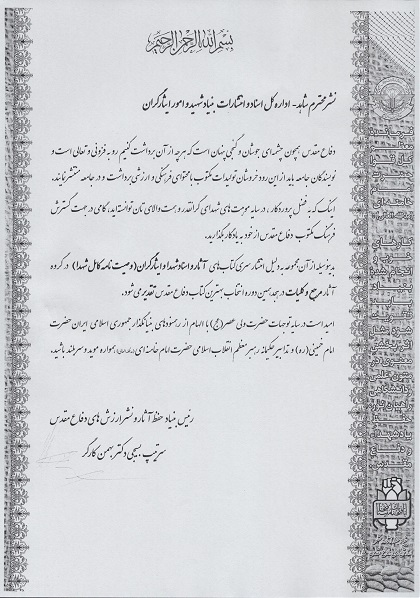 بسم الله الرحمن الرحیم
نشر محترم شاهد - اداره کل اسناد و انتشارات بنیاد شهید و امور ایثارگران
دفاع مقدس همچون چشمه‌ای جوشان و گنجی پنهان است که هر چه از آن برداشت کنیم رو به فزونی و تعالی است و
نویسندگان جامعه باید از این رود خروشان تولیدات مکتوب با محتوای فرهنگی و ارزشی برداشت و در جامعه منتشر نمایند.
اینک که به فضل پروردگار، در سایه موهبت های شهدای گرانقدر و همت والای تان توانسته‌اید، گامی در جهت گسترش
فرهنگ مکتوب دفاع مقدس از خود به یادگار بگذارید.
بدینوسیله از آن مجموعه به دلیل انتشار سری کتاب های آثار و اسناد شهدا و ایثارگران (وصیت نامه کامل شهدا) در گروه
آثار مرجع و کلیات در هجدهمین دوره انتخاب بهترین کتاب دفاع مقدس تقدیر می شود.
امید است در سایه توجهات حضرت ولی عصر (عج) با الهام از رهنمودهای بنیانگذار جمهوری اسلامی ایران حضرت
امام خمینی (ره) و تدابیر حکیمانه رهبر معظم انقلاب اسلامی حضرت امام خامنه ای همواره موید و سربلند باشید.
رئیس بنیاد حفظ آثار و نشر ارزش های دفاع مقدس
سرتیپ بسیجی دکتر بهمن کارگر